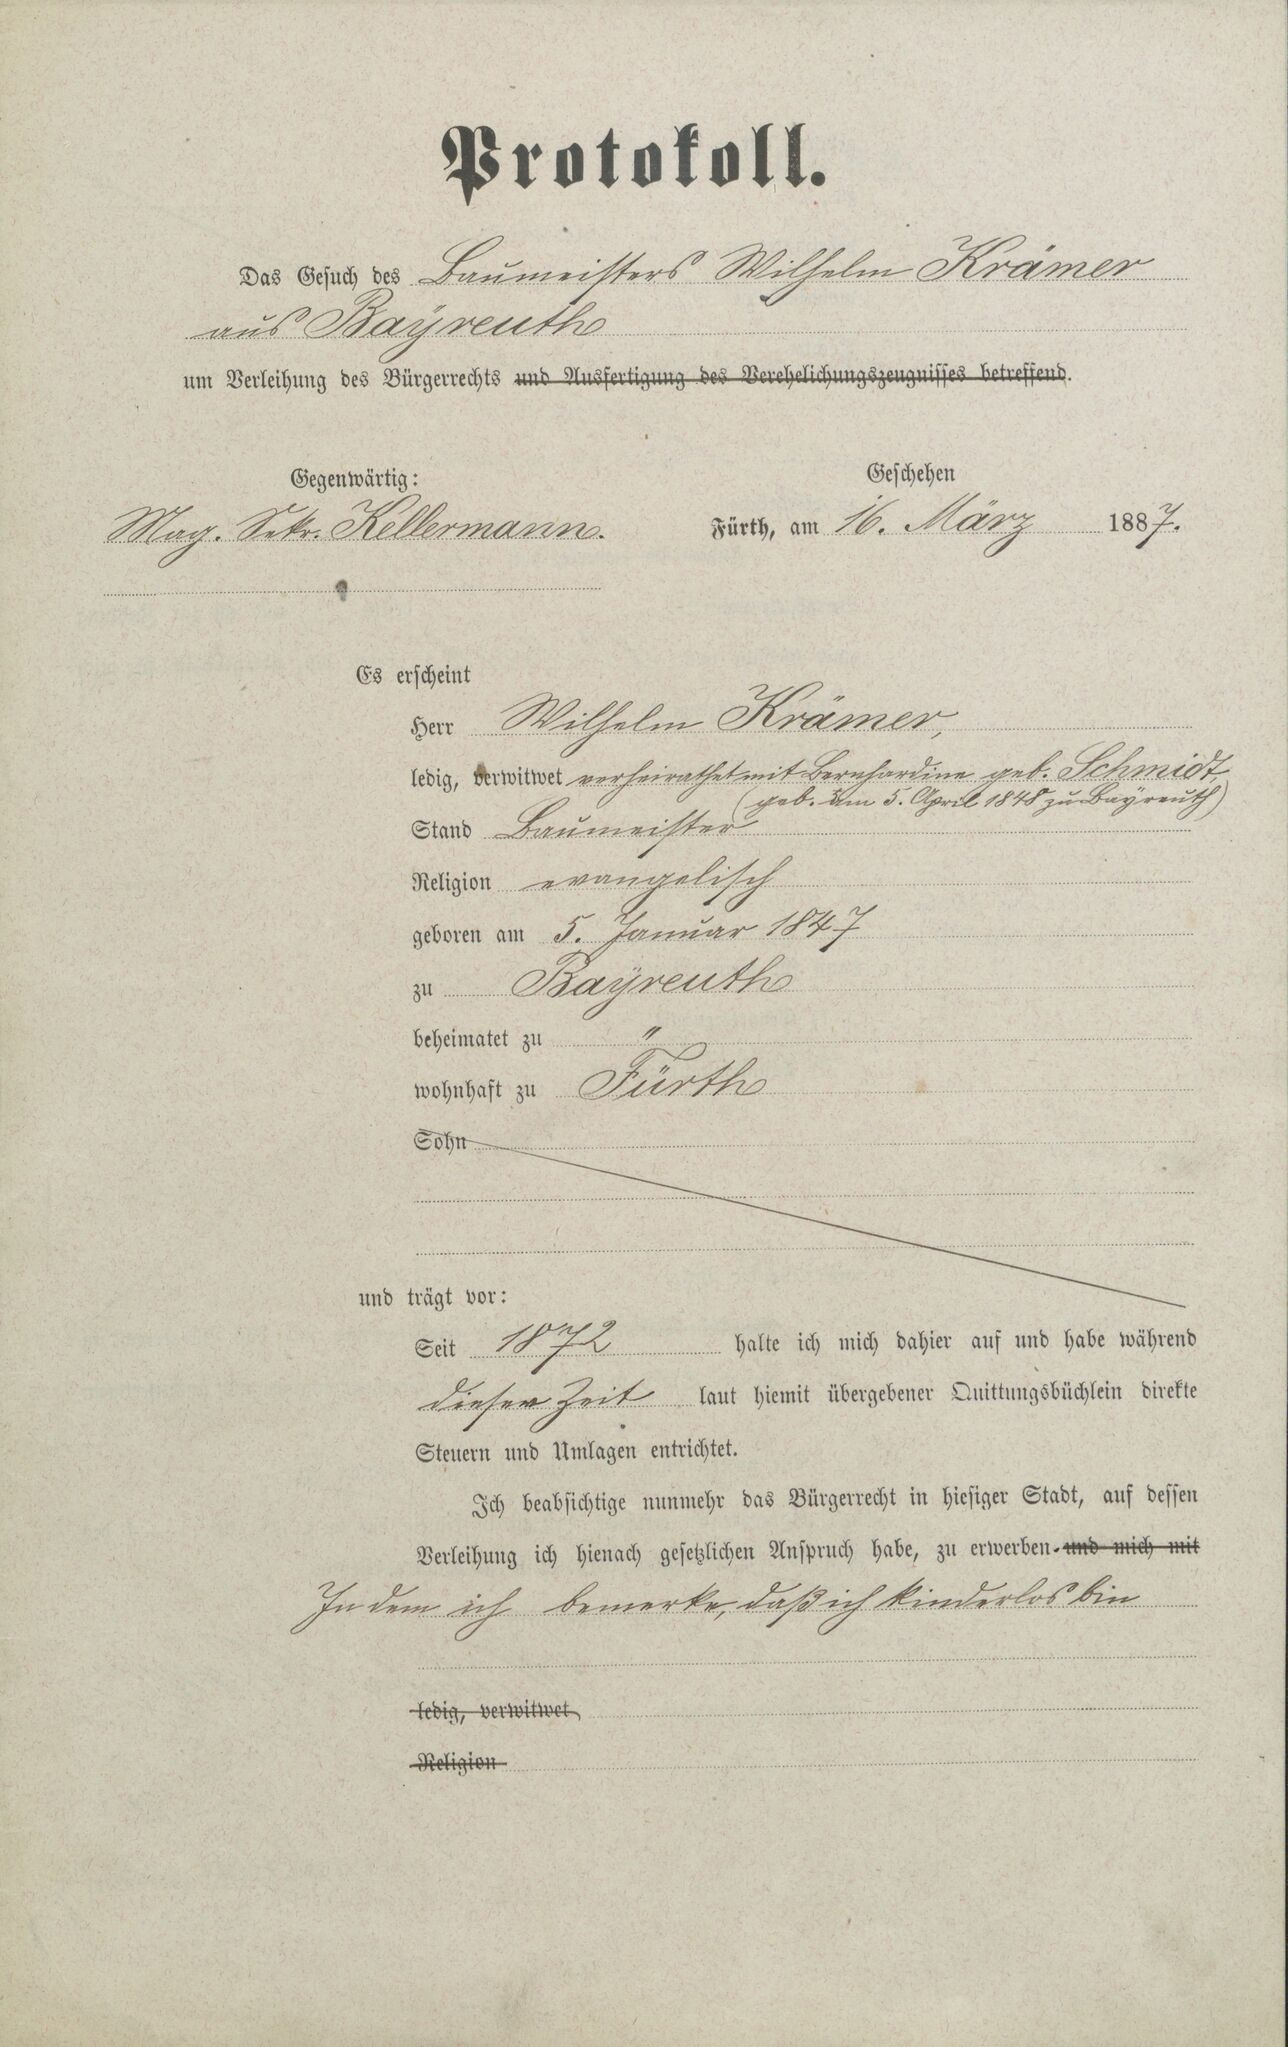 Protokoll.
Das Gesuch des Baumeisters Wilhelm Krämer
aus Bayreuth
um Verleihung des Bürgerrechts und Ausfertigung des Verehelichungszeugnisses betreffend.
Gegenwärtig:
Mag. Sekr. Kellermann.
Geschehen
Fürth, am 16. März 1887.
Es erscheint
Herr Wilhelm Krämer,
ledig, verwitwet verheirathet mit Bernhardine geb. Schmidt
(geb. am 5. April 1848 zu Bayreuth)
Stand Baumeister
Religion evangelisch
geboren am 5. Januar 1847
zu Bayreuth
beheimatet zu "
wohnhaft zu Fürth
Sohn
und trägt vor:
Seit 1872 halte ich mich dahier auf und habe während
dieser Zeit laut hiemit übergebener Quittungsbüchlein direkte
Steuern und Umlagen entrichtet.
Ich beabsichtige nunmehr das Bürgerrecht in hiesiger Stadt, auf dessen
Verleihung ich hienach gesetzlichen Anspruch habe, zu erwerben. und mich mit
In dem ich bemerke, daß ich kinderlos bin
ledig, verwitwet,
Religion